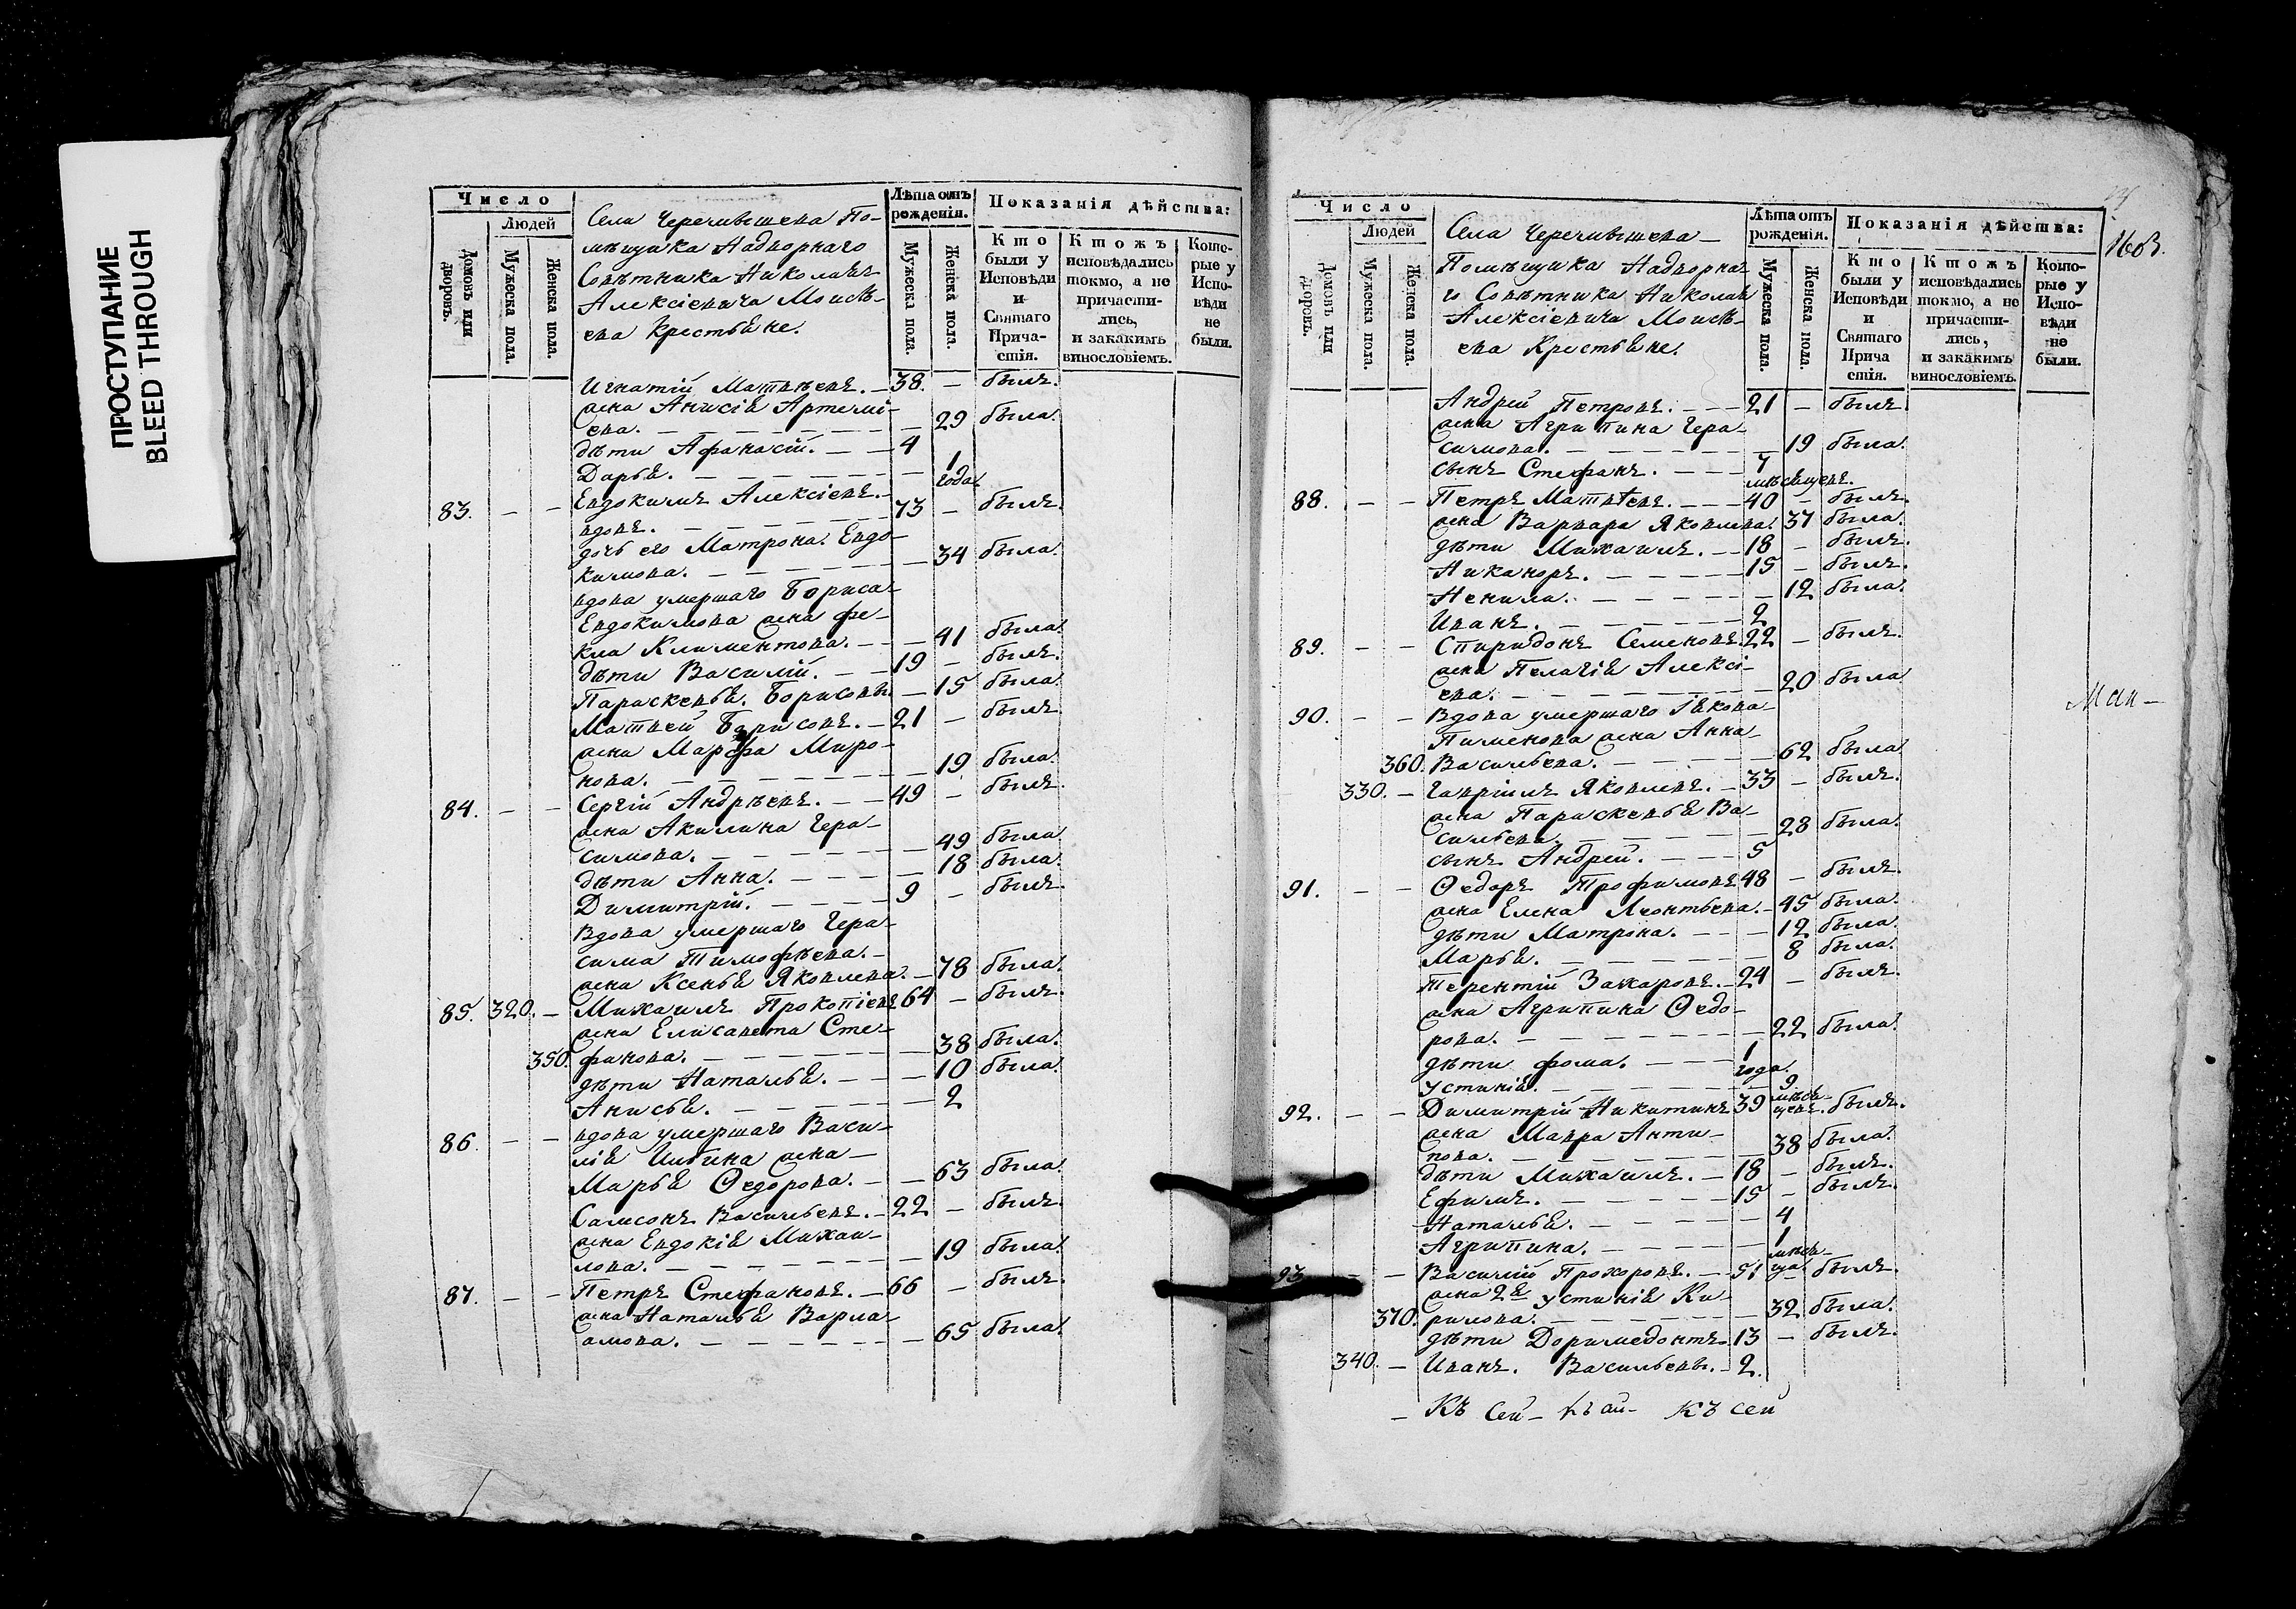 ПРОСТУПАНИЕ
BLEED THROUGH
Число
Людей
Домовъ или дворовъ.
Мужеска пола.
Женска пола.
Села Черемышева По-
мѣщика Надворнаго
Совѣтника Николая
Алексіевича Моисѣ-
ева крестьяне.
Лѣта отъ рожденія.
Мужеска пола.
Женска пола.
Показанія дѣйства:
Кто были у Исповѣди и Святаго Прича-стія.
Ктожъ исповѣдались токмо, а не причасти-лись, и закакимъ винословіемъ.
Кото-рые у Испо-вѣди не были.
Игнатій Матвѣевъ. — 38. — былъ.
жена Анисія Артемі-
ева. — — 29 была.
дѣти Афанасій. — 4
Дарья. — — 1 года.
83. — — Евдокимъ Алексіевъ.
вдовъ. — 73 — былъ.
дочь его Матрона Евдо-
кимова. — — 34 была.
вдова умершаго Бориса
Евдокимова жена Фе-
кла Климентова. — — 41 была.
дѣти Василій. — 19 — былъ.
Параскевья. Борисовы — 15 была.
Матвей Борисовъ. — 21 — былъ.
жена Марфа Миро-
нова. — — 19 была.
84. — — Сергій Андрѣевъ. — 49 — былъ.
жена Акилина Гера-
симова. — — 49 была.
дѣти Анна. — — 18 была.
Димитрій. — 9 — былъ.
Вдова умершаго Гера-
сима Тимофѣева.
жена Ксенья Яковлева. — 78 была.
85. 320. — Михаилъ Прокопіевъ 64 — былъ.
жена Елисавета Сте-
350. фанова. — — 38 была.
дѣти Наталья. — — 10 была.
Анисья. — — 2
86. — — вдова умершаго Васи-
лія Ильина жена
Марья Ѳедорова. — — 63 была.
Самсонъ Васильевъ. — 22 — былъ.
жена Евдокія Михаи-
лова. — — 19 была.
87. — — Петръ Стефановъ. — 66 — былъ.
жена Наталья Варла-
амова. — — 65 была.
Число
Людей
Домовъ или дворовъ.
Мужеска пола.
Женска пола.
Села Черемышева
Помѣщика Надворна-
го Совѣтника Николая
Алексіевича Моисѣ-
ева Крестьяне.
Лѣта отъ рожденія.
Мужеска пола.
Женска пола.
Показанія дѣйства:
Кто были у Исповѣди и Святаго Прича стія.
Ктожъ исповѣдались токмо, а не причасти-лись, и закакимъ винословіемъ.
Кото-рые у Испо-вѣди не были.
Андрей Петровъ. — 21 — былъ.
жена Агрипина Гера-
симова. — — 19 была.
сынъ Стефанъ. — 7 мѣсяцевъ.
88. — — Петръ Матвѣевъ. — 40 — былъ.
жена Варвара Яковлева. 37 была.
дѣти Михаилъ. — 18 — былъ.
Никаноръ. — 15 — былъ.
Ненила. — — 12 была.
Иванъ. — 2
89. — — Спиридонъ Семеновъ. 22 — былъ.
жена Пелагія Алексі-
ева. — — 20 была
90. — — Вдова умершаго Іякова
Пименова жена Анна
360. Васильева. — — 62 была
330. — Гавріилъ Яковлевъ. — 33 — былъ.
жена Параскевья Ва-
сильева. — — 28 была.
сынъ Андрей. — 5
91. — — Ѳедоръ Трофимовъ 48 — былъ.
жена Елена Леонтьева. — 45 была.
дѣти Матрона. — — 12 была.
Марья. — — 8 была.
Терентій Захаровъ. — 24 — былъ.
жена Агрипина Ѳедо-
рова. — — 22 была.
дѣти Фома. — 1 года.
Устинія. — — 9 мѣся-цевъ.
92. — — Димитрій Никитинъ 39 былъ.
жена Мавра Анти-
пова. — — 38 была.
дѣти Михаилъ. — 18 — былъ.
Ефимъ. — 15 — былъ.
Наталья. — — 4
Агрипина. — — 1 мѣся-ца
93 — — Василій Прохоровъ. — 51 — былъ.
жена 2я Устинія Ки-
370. рилова. — — 32 была.
дѣти Доримедонтъ. 13 — былъ.
340. — Иванъ. Васильевы. — 2.
Къ сей — Къ сей